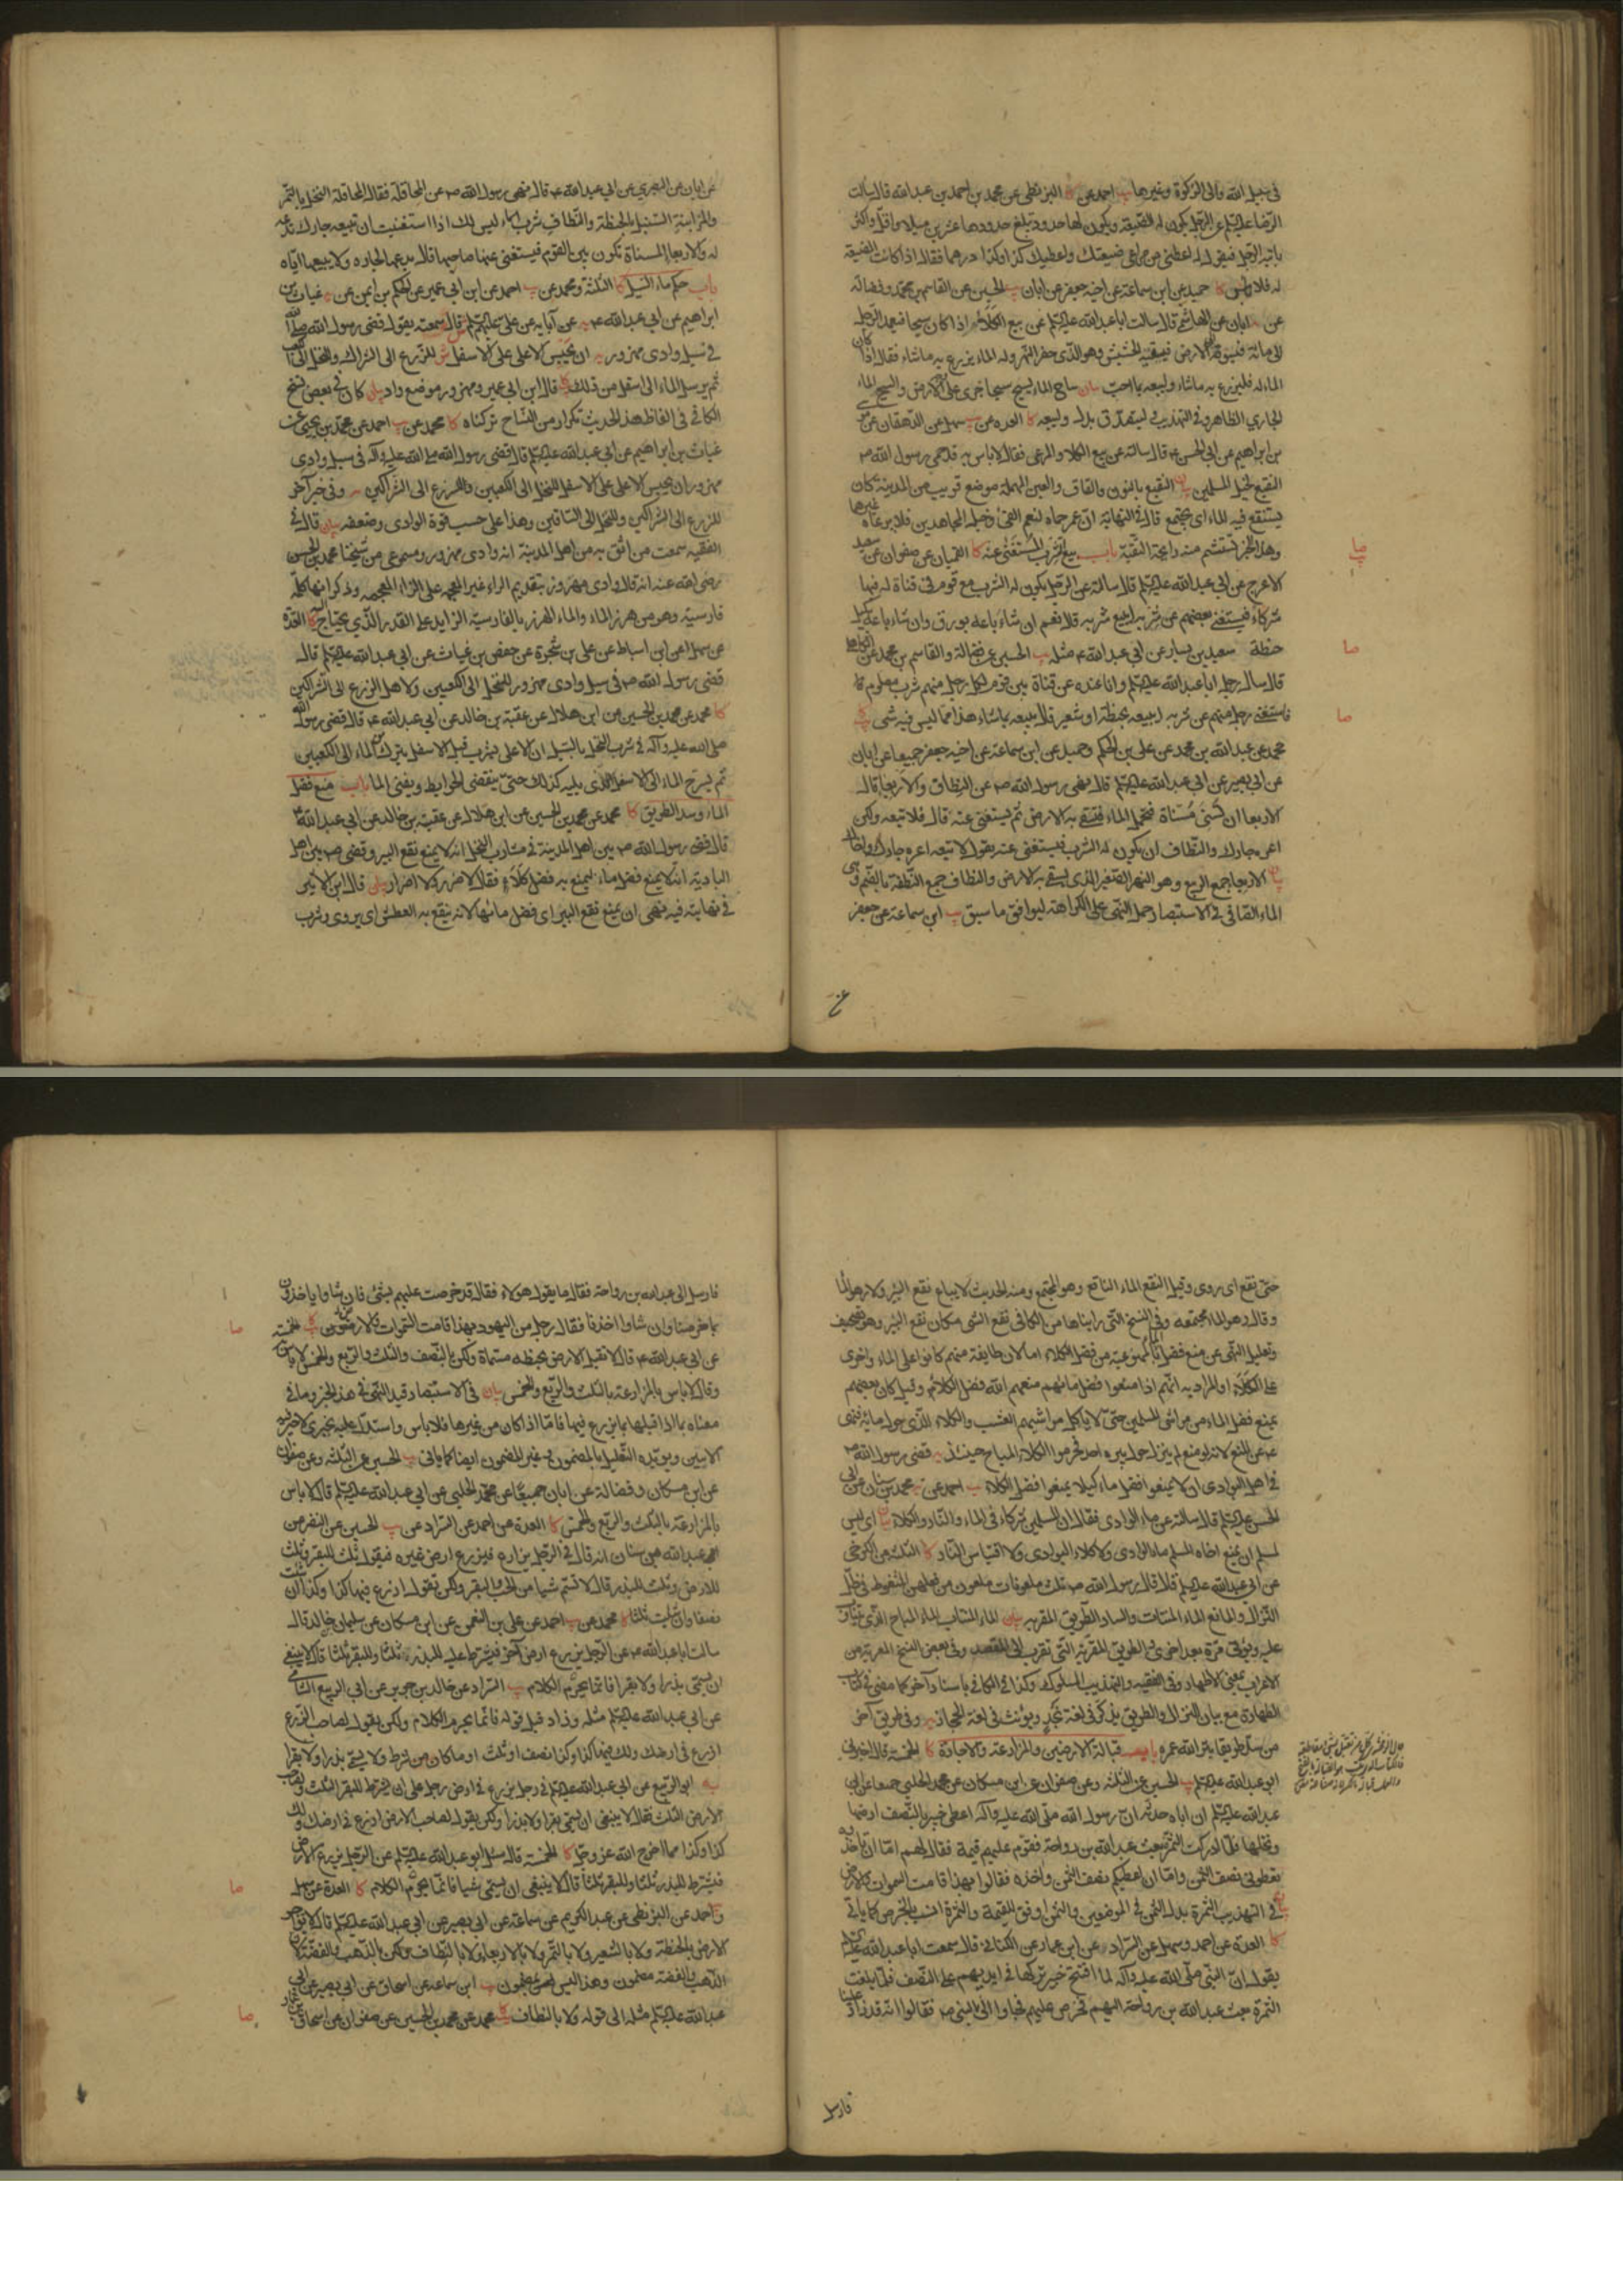 في سبيل الله والى الزكوة وغيرها يب احمد عن كا البزنطي عن محمد بن احمد بن عبد الله قال سالت
الرضا عليه السلم عن الرجل يكون له الضيعة ويكون لها حدود تبلغ حدودها عشرين ميلا واقل واكثر
ياتيه الرجل فيقول له اعطني من مراعي ضيعتك واعطيك كذا وكذا درهما فقال اذا كانت الضيعة
له فلا باس كا حميد عن ابن سماعة عن اخيه جعفر عن ابان يب الحسين عن القاسم بن محمد وفضالة
عن ابان عن الهاشمي قال سالت ابا عبد الله عليه السلم عن بيع الكلاء اذا كان سيحا فيعمد الرجل
الى مائه فيسوقه الى الارض فيسقيه الحشيش وهو الذي حفر النهر وله الماء يزرع به ما شاء فقال اذا كان
الماء له فليزرع به ما شاء وليبعه بما احب بيان ساح الماء يسيح سيحا جرى على وجه الارض والسيح الماء
الجاري الظاهر وفي التهذيب ليتصدق بدل وليبعه كا العدة عن يب سهل عن الدهقان عن موسى
بن ابراهيم عن ابي الحسن ع قال سالته عن بيع الكلا والمرعى فقال لا باس به قد حمى رسول الله ص
النقيع لخيل المسلمين بيان النقيع بالنون والقاف والعين المهملة موضع قريب من المدينة كان
يستنقع فيه الماء اي يجتمع قال في النهاية ان عمر حماه لنعم الفيء وخيل المجاهدين فلا يرعاه غيرها
وهذا الخبر تستشم منه رايحة التقية باب بيع الشرب المستغنى عنه كا القميان عن صفوان عن سعيد
الاعرج عن ابي عبد الله عليه السلم قال سالته عن الرجل يكون له الشرب مع قوم في قناة له فيها
شركاء فيستغني بعضهم عن شربه ايبيع شربه قال نعم ان شاء باعه بورق وان شاء باعه بكيل
حنطة سعيد بن يسار عن ابي عبد الله ع مثله يب الحسين عن فضالة والقاسم بن محمد عن الكاهلي
قال سال رجل ابا عبد الله عليه السلم وانا عنده عن قناة بين قوم لكل رجل منهم شرب معلوم
فاستغنى رجل منهم عن شربه ايبيعه بحنطة او شعير قال يبيعه بما شاء هذا مما ليس فيه شيء
محمد عن عبد الله بن محمد عن علي بن الحكم وحميد عن ابن سماعة عن اخيه جعفر جميعا عن ابان
عن ابي بصير عن ابي عبد الله عليه السلم قال نهى رسول الله ص عن النطاف والاربعا قال
الاربعا ان تسنى مسناة فتحمل الماء فتسقي به الارض ثم يستغنى عنه قال فلا تبعه ولكن
اعره جارك والنطاف ان يكون له الشرب فيستغنى عنه يقول لا تبعه اعره جارك او اخاك
بيان الاربعا جمع الربيع وهو النهر الصغير الذي يسقي به الارض والنطاف جمع النطفة بالضم وهي
الماء الصافي في الاستبصار حمل النهي على الكراهة ليوافق ما سبق يب ابن سماعة عن جعفر
عن
صا
يب
صا
صا
عن ابان عن البصري عن ابي عبد الله ع قال نهى رسول الله ص عن المحاقلة فقال المحاقلة النخل بالتمر
والمزابنة السنبل بالحنطة والنطاف شرب الماء ليس لك اذا استغنيت ان تبيعه جارك تدعه
له والاربعا المسناة تكون بين القوم فيستغني عنها صاحبها قال يدعها لجاره ولا يبيعها اياه
باب حكم ماء السيل كا الثلثة ومحمد عن يب احمد عن ابن ابي عمير عن الحكم بن ايمن عن غياث بن
ابراهيم عن ابي عبد الله ع يه عن آبايه عن علي عليهم السلم ش قال سمعته يقول قضى رسول الله صلى الله
في سيل وادي مهزور يه ان يحبس الاعلى على الاسفل ش للزرع الى الشراك والنخل الى الكعب
ثم يرسل الماء الى اسفل من ذلك كا قال ابن ابي عمير ومهزور موضع واد بيان كان في بعض نسخ
الكافي في الفاظ هذا الحديث تكرار من النساخ تركناه كا محمد عن يب احمد عن محمد بن يحيى عن
غياث بن ابراهيم عن ابي عبد الله عليه السلم قال قضى رسول الله صلى الله عليه وآله في سيل وادي
مهزور ان يحبس الاعلى على الاسفل للنخل الى الكعبين وللزرع الى الشراكين يه وفي خبر آخر
للزرع الى الشراكين وللنخل الى الساقين وهذا على حسب قوة الوادي وضعفه بيان قال في
الفقيه سمعت من اثق به من اهل المدينة انه وادي مهزور ومسموعي من شيخنا محمد بن الحسن
رضي الله عنه انه قال وادي مهزور بتقديم الراء غير المعجمه على الزاء المعجمه وذكر انها كلمة
فارسية وهو من هرز الماء والماء الهرز بالفارسية الزايد على القدر الذي يحتاج اليه كا العدة
عن سهل عن ابن اسباط عن علي بن شجرة عن حفص بن غياث عن ابي عبد الله عليه السلم قال
قضى رسول الله ص في سيل وادي مهزور للنخل الى الكعبين ولاهل الزرع الى الشراكين
كا محمد عن محمد بن الحسين عن ابن هلال عن عقبة بن خالد عن ابي عبد الله ع قال قضى رسول الله
صلى الله عليه وآله في شرب النخل بالسيل ان الاعلى يشرب قبل الاسفل يترك من الماء الى الكعبين
ثم يسرح الماء الى الاسفل الذي يليه كذلك حتى ينقضي الحوايط ويفنى الماء باب منع فضل
الماء وسد الطريق كا محمد عن محمد بن الحسين عن ابن هلال عن عقبة بن خالد عن ابي عبد الله ع
قال قضى رسول الله ص بين اهل المدينة في مشارب النخل انه لا يمنع نقع البير وقضى ص بين اهل
البادية انه لا يمنع فضل ماء ليمنع به فضل كلاء فقال لا ضرر ولا اضرار بيان قال ابن الاثير
في نهايته فيه نهى ان يمنع نقع البير اي فضل مائها لانه ينقع به العطش اي يروى وشرب
حتى نقع اي روى وقيل النقع الماء الناقع وهو المجتمع ومنه الحديث لا يباع نقع البئر ولا رهو الماء
وقال رهو الماء مجتمعه وفي النسخ التي رايناها من الكافي نقع الشيء مكان نقع البئر وهو تصحيف
وتعليل النهي عن منع فضل الماء بممنوعية من فضل الكلاء اما لان طايفة منهم كانوا على الماء واخرى
على الكلاء او المراد به انهم اذا منعوا فضل مائهم منعهم الله فضل الكلاء وقيل كان بعضهم
يمنع فضل الماء من مواشي المسلمين حتى لا ياكل مواشيهم العشب والكلاء الذي حول مائه فنهى
ع عن المنع لانه لو منع لم ينزل حول بيره احد فحرموا الكلاء المباح حينئذ يه قضى رسول الله ص
في اهل البوادي ان لا يمنعوا فضل ماء كيلا يمنعوا فضل الكلاء يب احمد عن يه محمد بن سنان عن ابي
الحسن عليه السلم قال سالته عن ماء الوادي فقال ان المسلمين شركاء في الماء والنار والكلاء بيان اي ليس
لمسلم ان يمنع اخاه المسلم ماء الوادي ولا كلاء البوادي ولا اقتباس النار كا الثلثة عن الكرخي
عن ابي عبد الله عليه السلم قال قال رسول الله ص ثلث ملعونات ملعون من فعلهن المتغوط في ظل
النزال والمانع الماء المنتاب والساد الطريق المقربه بيان الماء المنتاب الماء المباح الذي يتناوب
عليه ويؤتى مرة بعد اخرى والطريق المقربة التي تقرب الى المقصد وفي بعض النسخ المعربة من
الاعراب بمعنى الاظهار وفي الفقيه والتهذيب المسلوك وكذا في الكافي باسناد آخر كما مضى في كتاب
الطهارة مع بيان النزال والطريق يذكر في لغة نجد ويؤنث في لغة الحجاز يه وفي طريق آخر
من سد طريقا بتر الله عمره باب قبالة الارضين والمزارعة والاجارة كا الخمسة قال اخبرني
ابو عبد الله عليه السلم يب الحسين عن الثلثة وعن صفوان عن ابن مسكان عن محمد الحلبي جميعا عن ابي
عبد الله عليه السلم ان اباه حدثه ان رسول الله صلى الله عليه وآله اعطى خيبر بالنصف ارضها
ونخلها فلما ادركت الثمرة بعث عبد الله بن رواحة فقوم عليهم قيمة فقال لهم اما ان تاخذوه
تعطوني نصف الثمن واما ان اعطيكم نصف الثمن واخذه فقالوا بهذا قامت السموات والارض
بيان في التهذيب الثمرة بدل الثمن في الموضعين والثمن اوفق للقيمة والثمرة انسب للخرص كما ياتي
كا العدة عن احمد وسهل عن السراد عن ابن عمار عن الكناني قال سمعت ابا عبد الله عليه السلم
يقول ان النبي صلى الله عليه وآله لما افتتح خيبر تركها في ايديهم على النصف فلما بلغت
الثمرة بعث عبد الله بن رواحة اليهم فخرص عليهم فجاوا الى النبي ص فقالوا انه قد زاد علينا
فارسل
فارسل الى عبد الله بن رواحة فقال ما يقول هولاء فقال قد خرصت عليهم بشيء فان شاوا ياخذون
بما خرصنا وان شاوا اخذنا فقال رجل من اليهود بهذا قامت السموات والارضون كا يب الخمسة
عن ابي عبد الله ع قال لا تقبل الارض بحنطه مسماة ولكن بالنصف والثلث والربع والخمس لا باس به
وقال لا باس بالمزارعة بالثلث والربع والخمس بيان في الاستبصار قيد النهي في هذا الخبر وما في
معناه بما اذا قبلها بما يزرع فيها فاما اذا كان من غيرها فلا باس واستدل عليه بخبري
الاتيين ويويده التعليل بالمضمون وغير المضمون ايضا كما ياتي يب الحسين عن الثلثة وعن صفوان
عن ابن مسكان وفضالة عن ابان جميعا عن محمد الحلبي عن ابي عبد الله عليه السلم قال لا باس
بالمزارعة بالثلث والربع والخمس كا العدة عن احمد عن السراد عن يب الحسين عن النضر عن
عبد الله بن سنان انه قال في الرجل يزارع فيزرع ارض غيره فيقول ثلث للبقر وثلث
للارض وثلث للبذر قال لا تسم شيئا من الحب والبقر ولكن تقول ازرع فيها كذا وكذا ان شئت
نصفا وان شئت ثلثا كا محمد عن يب احمد عن علي بن النعمن عن ابن مسكان عن سليمان بن خالد قال
سالت ابا عبد الله ع عن الرجل يزرع ارض آخر فيشترط عليه للبذر ثلثا وللبقر ثلثا قال لا ينبغي
ان يسمي بذرا ولا بقرا فانما يحرم الكلام يب السراد عن خالد بن جرير عن ابي الربيع الشامي
عن ابي عبد الله عليه السلم مثله وزاد قبل قوله فانما يحرم الكلام ولكن يقول لصاحب الارض
ازرع في ارضك ولك منها كذا وكذا نصف او ثلث او ما كان من شرط ولا يسمي بذرا ولا بقرا
يه ابو الربيع عن ابي عبد الله عليه السلم في رجل يزرع في ارض رجل على ان يشترط للبقر الثلث ولصاحب
الارض الثلث فقال لا ينبغي ان يسمي بقرا ولا بذرا ولكن يقول لصاحب الارض ازرع في ارضك ولك
كذا وكذا مما اخرج الله عز وجل كا الخمسة قال سئل ابو عبد الله عليه السلم عن الرجل يزرع الارض
فيشترط للبذر ثلثا وللبقر ثلثا قال لا ينبغي ان يسمي شيئا فانما يحرم الكلام كا العدة عن سهل
واحمد عن البزنطي عن عبد الكريم عن سماعة عن ابي بصير عن ابي عبد الله عليه السلم قال لا تواجر
الارض بالحنطة ولا بالشعير ولا بالتمر ولا بالاربعاء ولا بالنطاف ولكن بالذهب والفضة لان
الذهب والفضة مضمون وهذا ليس بمضمون يب ابن سماعه عن اسحاق عن ابي بصير عن ابي
عبد الله عليه السلم مثله الى قوله ولا بالنطاف كا محمد عن محمد بن الحسين عن صفوان عن اسحاق بن عمار
صا
صا
صا